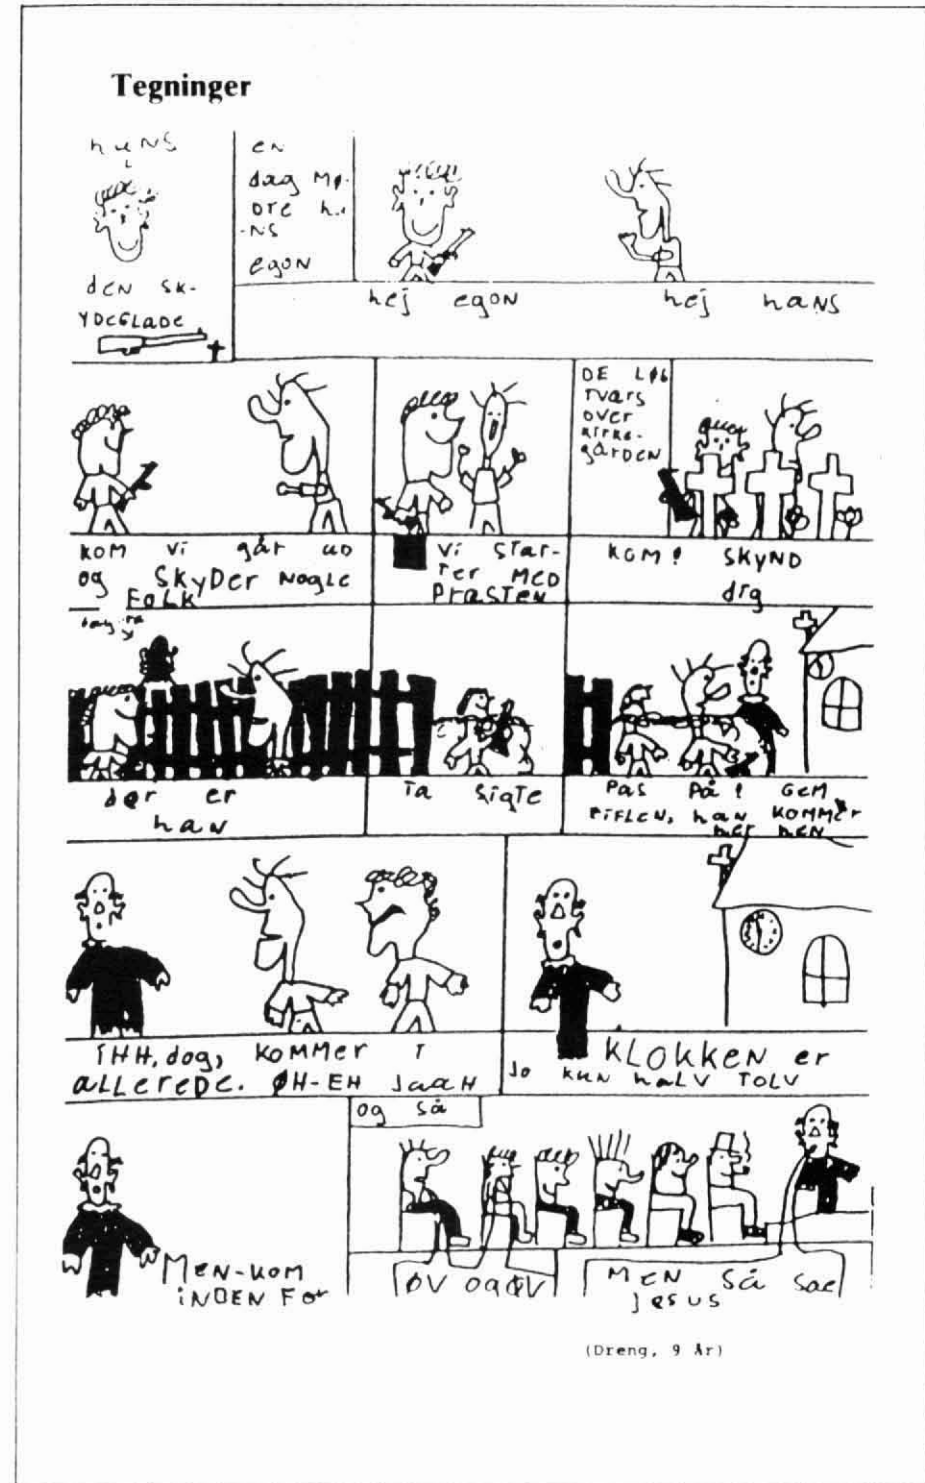 Tegninger
hANS
deN SK-
YDeGLADe
eN
dag Mø-
DTe hA
-NS
egoN
hej egoN
hej hANS
KOM Vi går UD
og SKyDer Nogle
FOLK
Vi STar-
Ter MeD
PrasTeN
DE Løb
TVars
over
Kirke-
gårDeN
KOM! SKyND
dig
der er
haN
Ta SigTe
Pas På! GeM
riFLeN, haN KOMMer
her heN
IHH, dog, KOMMer I
ALLereDe. ØH-EH JaaH
KLOKKeN er
Jo KUN haLV TOLV
MeN-KOM
iNDeN For
og Så
ØV OgØV
MeN Så Sae
JeSUS
(Dreng, 9 År)